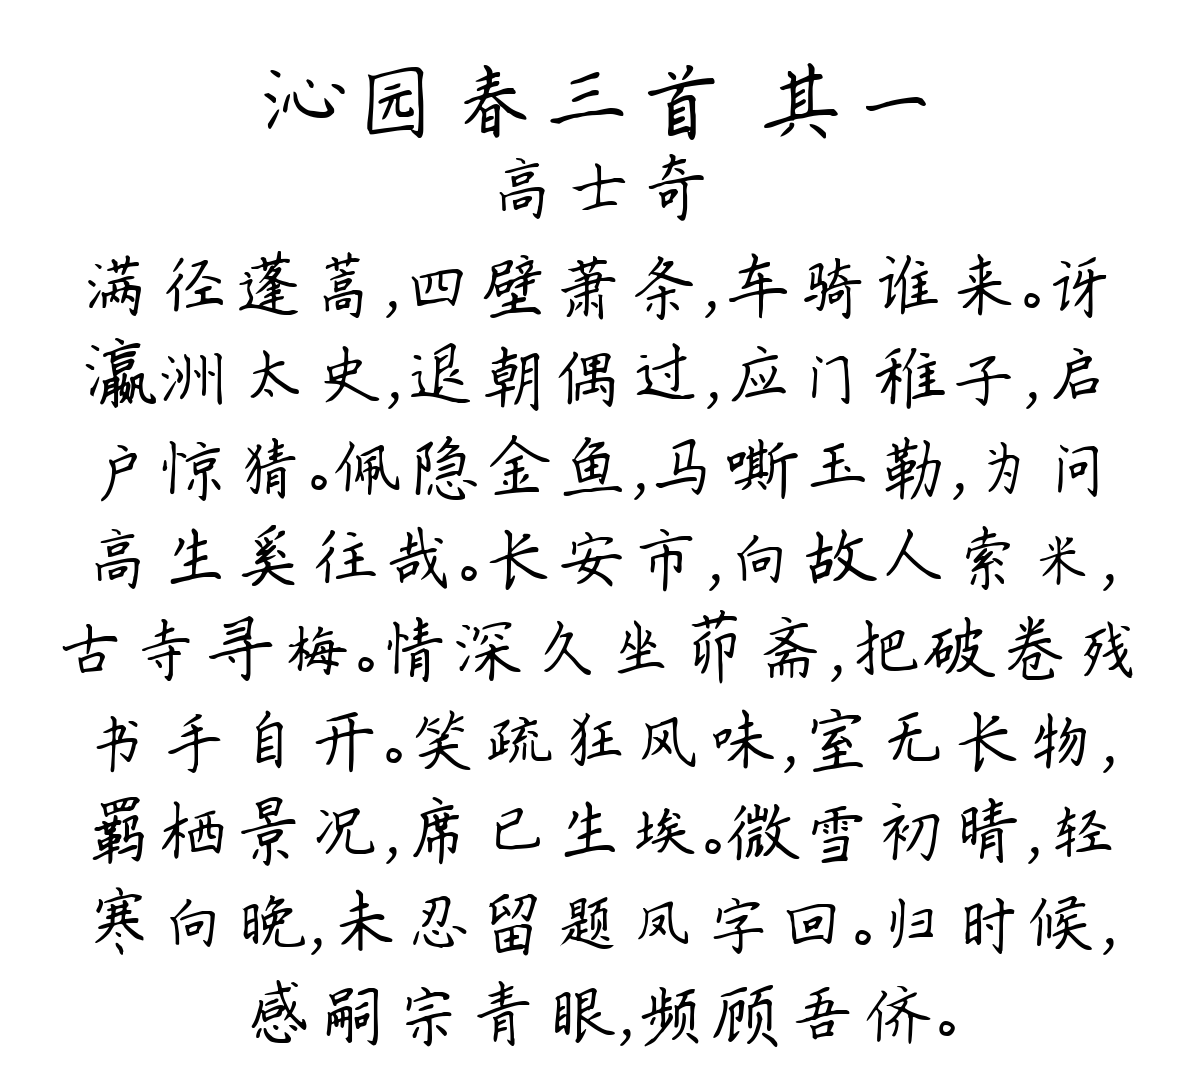 沁园春三首 其一
高士奇
满径蓬蒿,四壁萧条,车骑谁来。讶
瀛洲太史,退朝偶过,应门稚子,启
户惊猜。佩隐金鱼,马嘶玉勒,为问
高生奚往哉。长安市,向故人索米,
古寺寻梅。情深久坐茆斋,把破卷残
书手自开。笑疏狂风味,室无长物,
羁栖景况,席已生埃。微雪初晴,轻
寒向晚,未忍留题凤字回。归时候,
感嗣宗青眼,频顾吾侪。